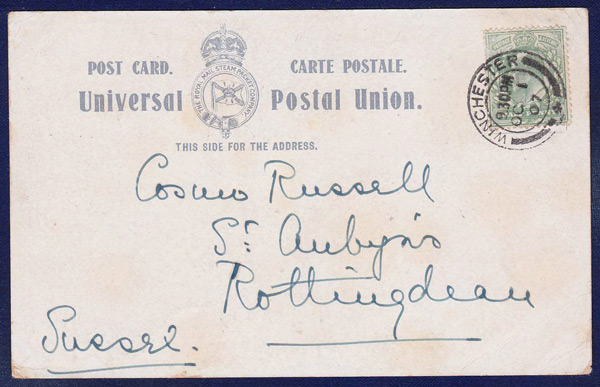 POST CARD. CARTE POSTALE.
THE ROYAL MAIL STEAM PACKET COMPANY
Universal Postal Union.
THIS SIDE FOR THE ADDRESS.
WINCHESTER
9.30PM
Cosmo Russell
St. Aubyn's
Rottingdean
Sussex.